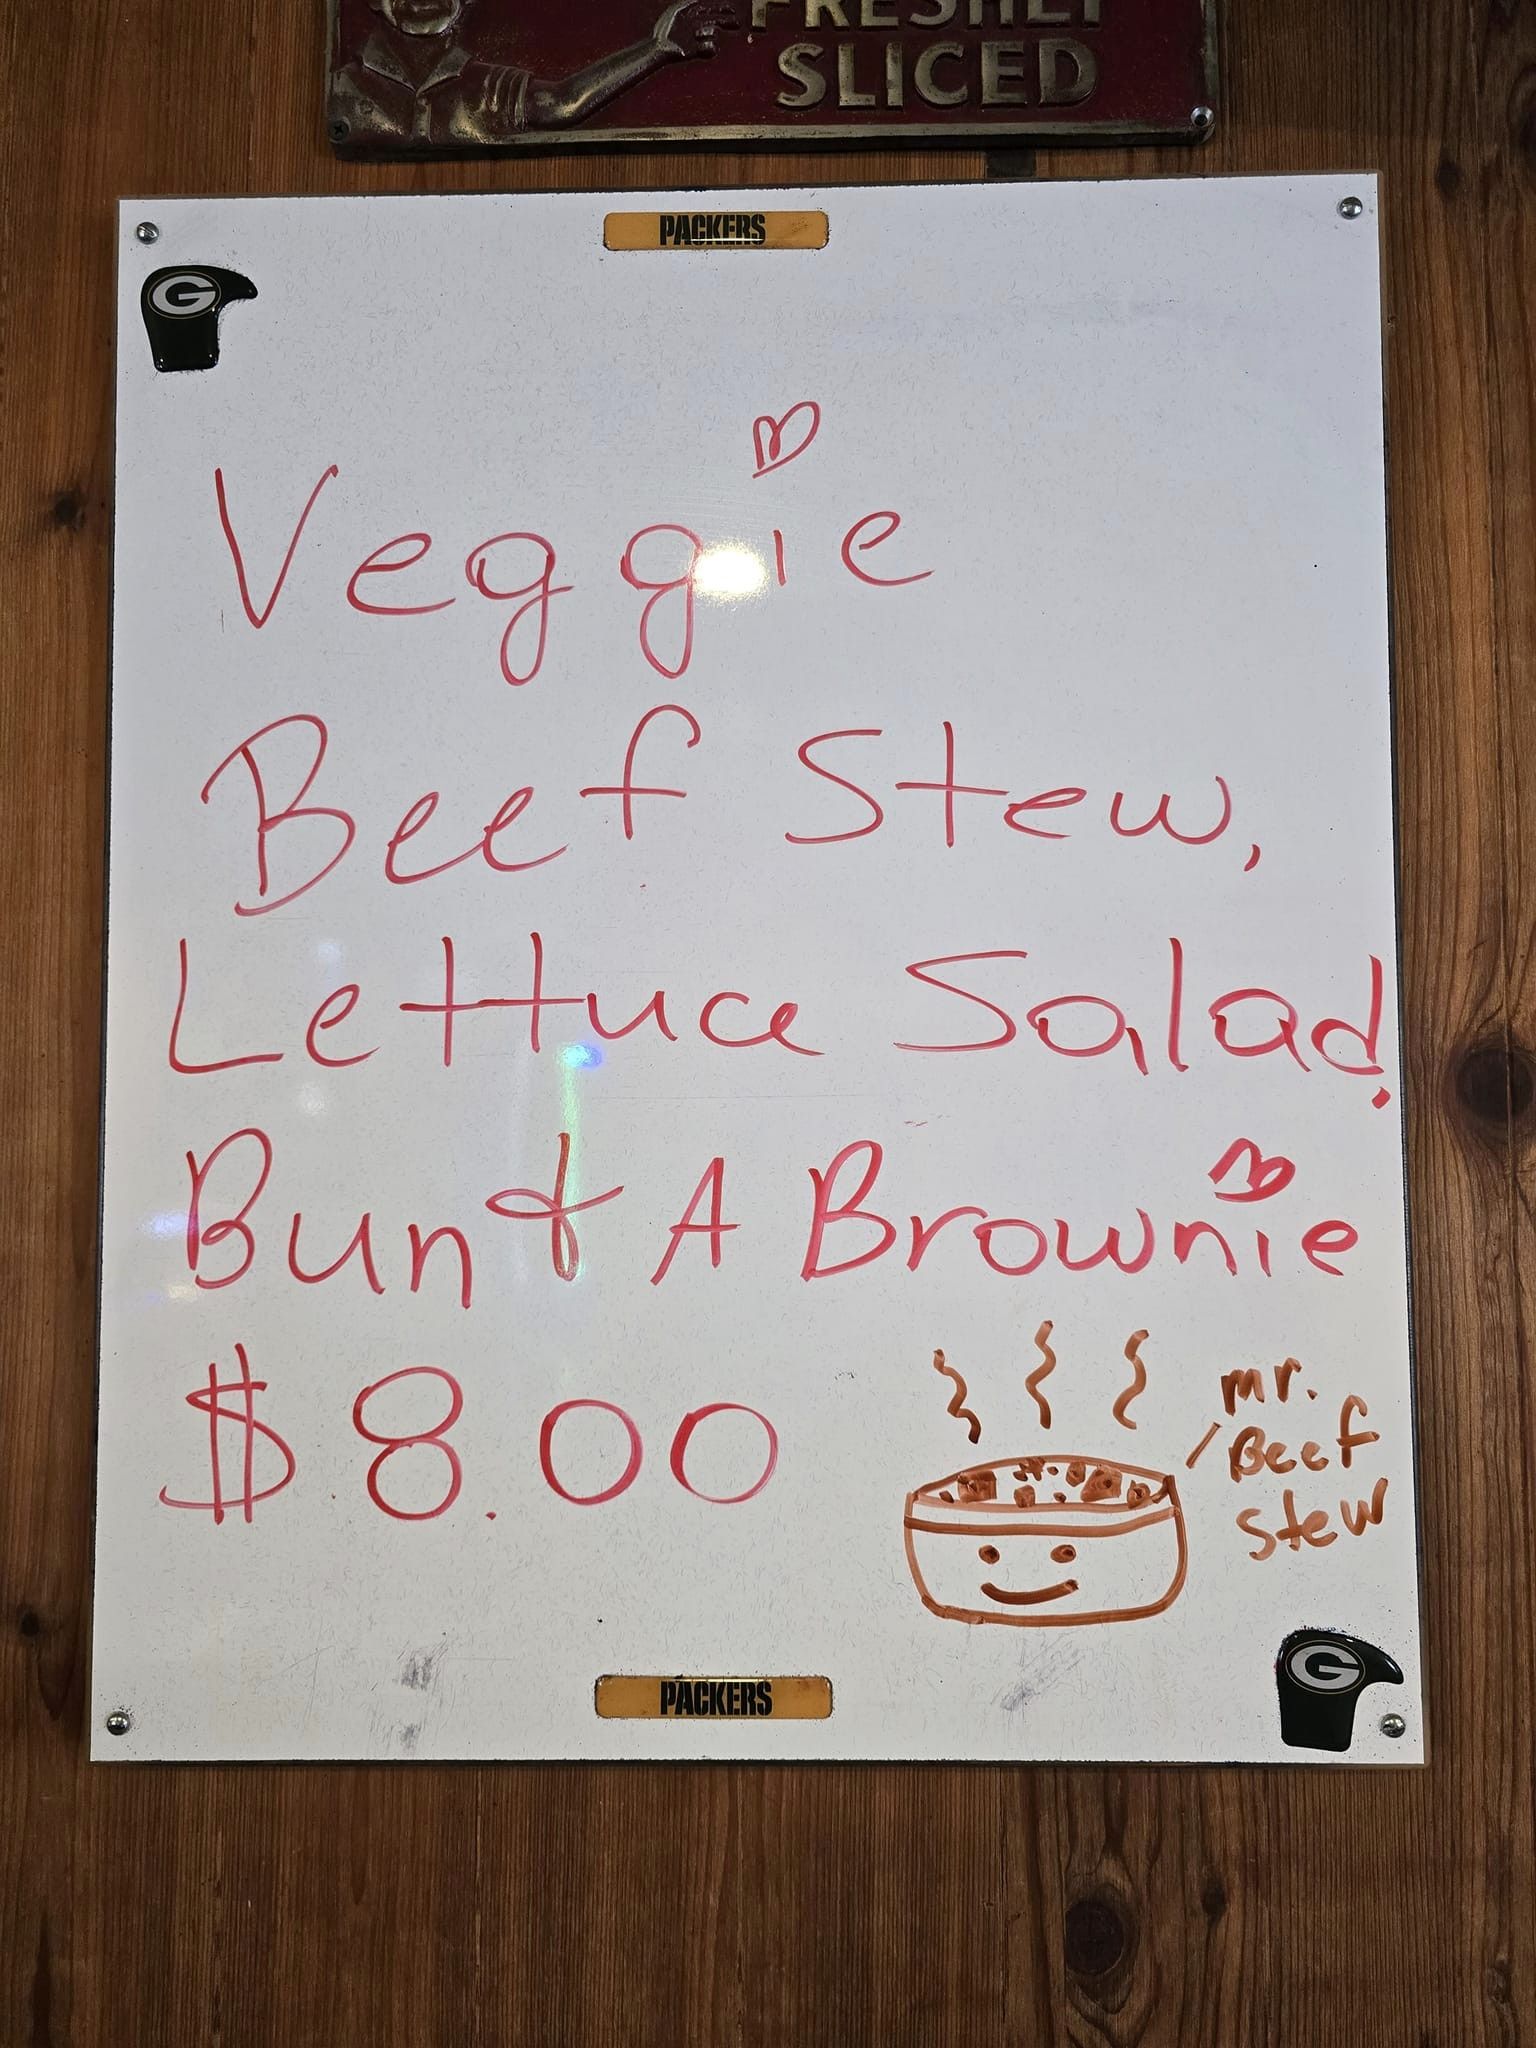 FRESHLY
SLICED
PACKERS
G
Veggie
Beef Stew,
Lettuce Salad,
Bun & A Brownie
$8.00
mr.
Beef
Stew
PACKERS
G